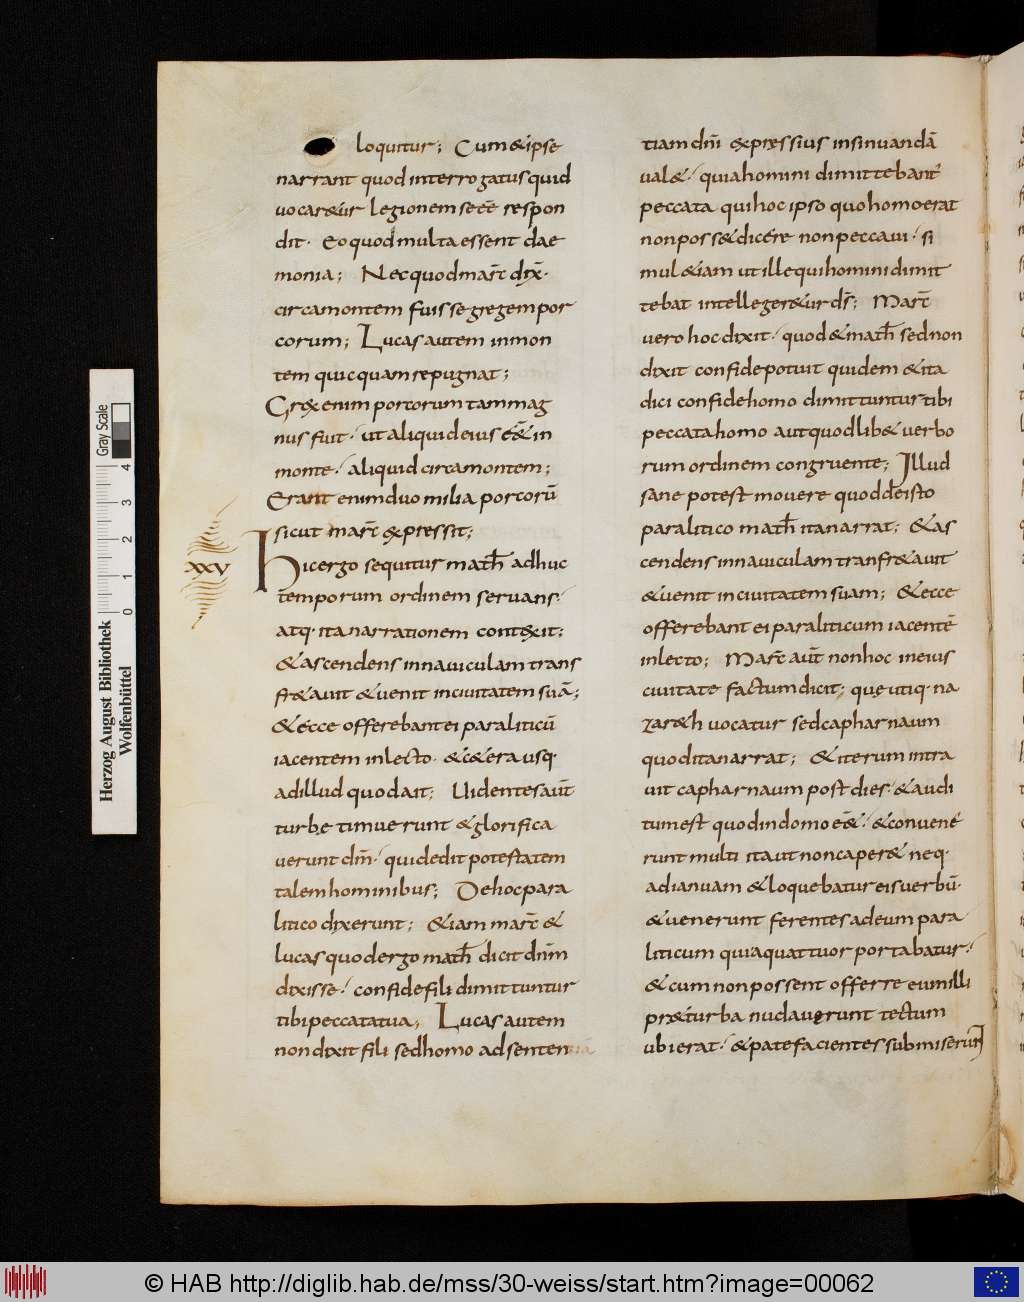 loquitur; Cum & ipse
narrant quod interrogatus quid
uocar&ur legionem se eē respon
dit· Eo quod multa essent dae
monia; Nec quod marc̄ dix̄·
circa montem fuisse gregem por
corum; Lucas autem in mon
tem quicquam repugnat;
Grex enim porcorum tam mag
nus fuit· ut aliquid eius ēē& in
monte· aliquid circa montem;
Erant enim duo milia porcorū
sicut marc̄ expressit;
XXV
Hic ergo sequitur math̄ adhuc
temporum ordinem seruans·
atq· ita narrationem contexit;
& ascendens in nauiculam trans
fr&auit & uenit in ciuitatem suā;
& ecce offerebant ei paraliticū
iacentem in lecto· & c&era usq·
ad illud quod ait; Uidentes aūt
turbe timuerunt & glorifica
uerunt dm̄· qui dedit potestatem
talem hominibus; De hoc para
litico dixerunt; &iam marc̄ &
lucas quod ergo math̄ dicit dnm̄
dixisse· confide fili dimittuntur
tibi peccata tua; Lucas autem
non dixit fili sed homo ad senten
tiam dnī expressius insinuandā
ual&· quia homini dimittebant̄
peccata qui hoc ipso quo homo erat
non poss& dicere non peccaui· si
mul &iam ut ille qui homini dimit
tebat intelleger&ur ds̄; Marc̄
uero hoc dixit· quod & math̄ sed non
dixit confide potuit quidem & ita
dici confide homo dimittuntur tibi
peccata homo aut quodlib& uerbo
rum ordinem congruente; Illud
sane potest mouere quod de isto
paralitico math̄ ita narrat; & as
cendens in nauiculam transfr&auit
& uenit in ciuitatem suam; & ecce
offerebant ei paraliticum iacentē
in lecto; Marc̄ aūt non hoc in eius
ciuitate factum dicit; quę utiq· na
zar&h uocatur sed capharnaum
quod ita narrat; & iterum intra
uit capharnaum post dies· & audi
tum est quod in domo ēē&· & conuenē
runt multi ita ut non caper& neq·
ad ianuam & loquebatur eis uerbū·
& uenerunt ferentes ad eum para
liticum qui a quattuor portabatur·
& cum non possent offerre eum illi
prae turba nudauerunt tectum
ubi erat· & patefacientes submiserunt
Herzog August Bibliothek
Wolfenbüttel
Gray Scale
0 1 2 3 4
© HAB http://diglib.hab.de/mss/30-weiss/start.htm?image=00062